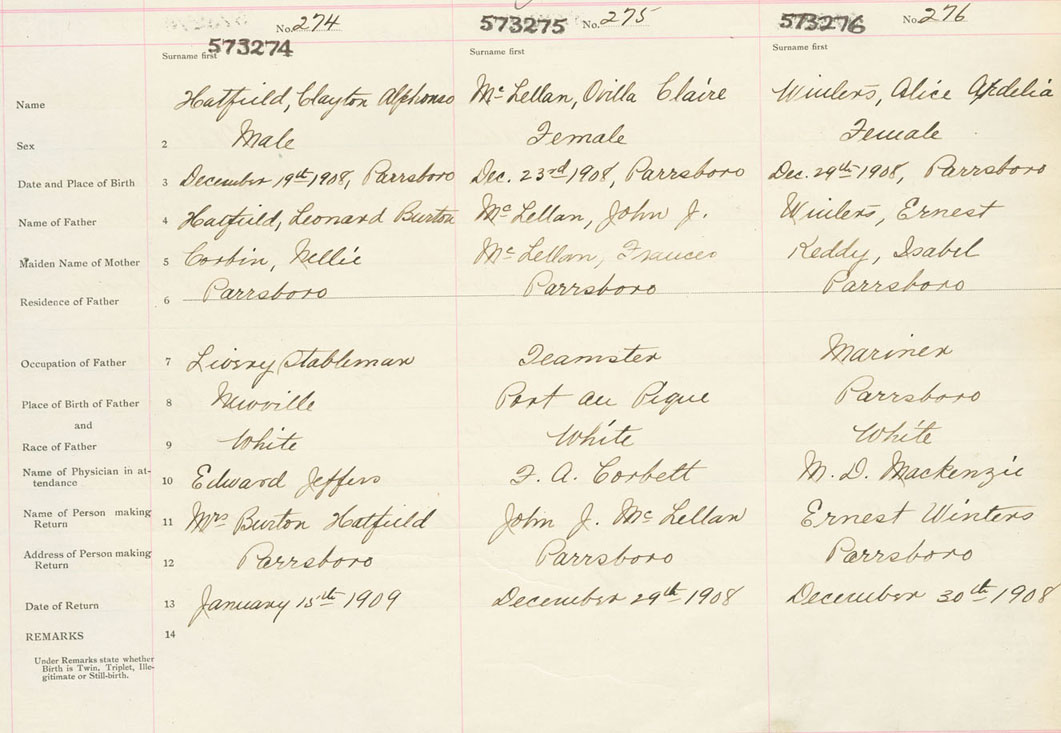 No. 274 No. 275 No. 276
573274 573275 573276
Surname first Surname first Surname first
Name Hatfield, Clayton Alphonso Mc Lellan, Ovilla Claire Winters, Alice Ardelia
Sex 2 Male Female Female
Date and Place of Birth 3 December 19th 1908, Parrsboro Dec. 23rd 1908, Parrsboro Dec. 29th 1908, Parrsboro
Name of Father 4 Hatfield, Leonard Burton Mc Lellan, John J. Winters, Ernest
Maiden Name of Mother 5 Corbin, Nellie Mc Lellan, Frances Keddy, Isabel
Residence of Father 6 Parrsboro Parrsboro Parrsboro
Occupation of Father 7 Livery Stableman Teamster Mariner
Place of Birth of Father 8 Newville Port au Pique Parrsboro
and
Race of Father 9 White White White
Name of Physician in at-
tendance 10 Edward Jeffers F. A. Corbett M. D. Mackenzie
Name of Person making
Return 11 Mrs Burton Hatfield John J. Mc Lellan Ernest Winters
Address of Person making
Return 12 Parrsboro Parrsboro Parrsboro
Date of Return 13 January 15th 1909 December 29th 1908 December 30th 1908
REMARKS 14
Under Remarks state whether
Birth is Twin, Triplet, Ille-
gitimate or Still-birth.